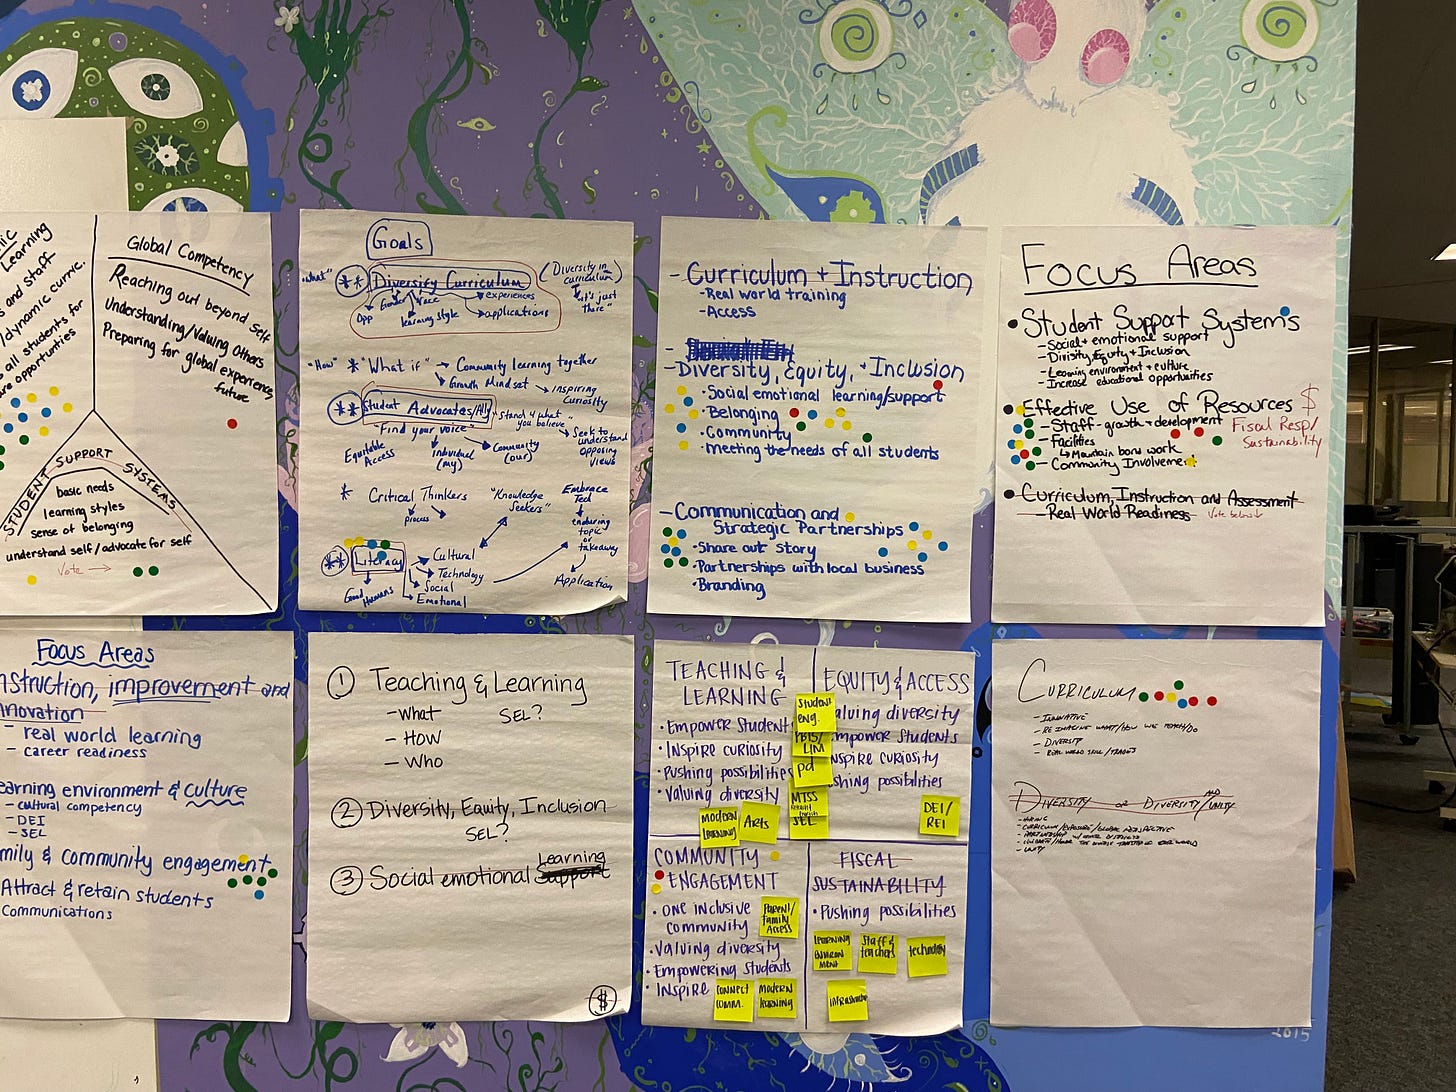 lic
Learning
s and staff
/dynamic curric.
all students for
re opportunities
Global Competency
Reaching out beyond self
Understanding/Valuing Others
Preparing for global experience
future
STUDENT SUPPORT SYSTEMS
basic needs
learning styles
sense of belonging
understand self/advocate for self
Vote →
Goals
"What" ** Diversify Curriculum
(Diversity in
curriculum)
"it's just
there"
Opp
Gender
race
learning style
experiences
applications
"How" * "What if" → Community learning together
Growth Mindset → Inspiring
Curiosity
** Student Advocates/Ally
"Stand 4 what
you believe"
"Find your voice"
Equitable
Access
Individual
(my)
Community
(our)
Seek to
understand
opposing
views
* Critical Thinkers
process
"Knowledge
Seekers"
Embrace
Tech
enduring
topic
or
takeaway
Application
** Literacy
Good
Humans
Cultural
Technology
Social
Emotional
- Curriculum + Instruction
- Real world training
- Access
- Diversity, Equity, + Inclusion
· Social emotional learning/support
· Belonging
· Community
· meeting the needs of all students
- Communication and
Strategic Partnerships
· Share out story
· Partnerships with local business
· Branding
Focus Areas
• Student Support Systems
- Social + emotional support
- Divisity, Equity + Inclusion
- Learning environment + culture
- Increase educational opportunities
Effective Use of Resources $
- Staff - growth + development
Fiscal Resp/
Sustainability
- Facilities
↳ Maintain bond work
- Community Involvement
• Curriculum, Instruction and Assessment
- Real World Readiness
Vote below ↓
Focus Areas
nstruction, improvement and
nnovation
- real world learning
- career readiness
earning environment & culture
- cultural competency
- DEI
- SEL
mily & community engagement
Attract & retain students
Communications
① Teaching & Learning
- What
SEL?
- How
- Who
② Diversity, Equity, Inclusion
SEL?
③ Social emotional Learning
Support
$
TEACHING &
LEARNING
· Empower Student
· Inspire curiosity
· Pushing possibilities
· Valuing diversity
Student
eng.
LIM
pd
MTSS
SEL
MODERN
LEARNING
Arts
EQUITY & ACCESS
aluing diversity
mpower Students
nspire curiosity
shing possibilities
DEI/
REI
COMMUNITY
ENGAGEMENT
· One inclusive
community
· Valuing diversity
· Empowering Students
· Inspire
Parent/
family
Access
CONNECT
COMM.
MODERN
LEARNING
FISCAL
SUSTAINABILITY
· Pushing possibilities
LEARNING
ENVIRON
MENT
Staff &
teachers
technology
Infrastructure
CURRICULUM
- INNOVATIVE
- RE IMAGINE WHAT/HOW WE TEACH/DO
- DIVERSITY
- REAL WORLD SKILL/TRADES
DIVERSITY OR DIVERSITY AND/UNITY
- HIRING
- CURRICULUM/EXPOSURE/GLOBAL PERSPECTIVE
- PARTNERSHIP W/ OTHER DISTRICTS
- UNITY
2015